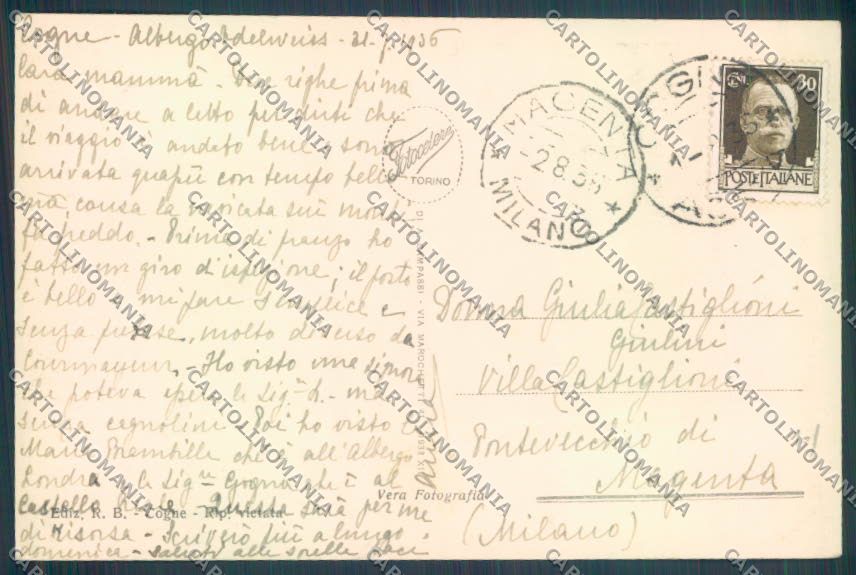 Cogne - Albergo Edelweiss - 31-7-1935
Cara mammà - Due righe prima
di andare a letto per dirti che
il viaggio è andato bene e sono
arrivata quapiù con tempo bello
ma causa la nevicata sui monti
fa freddo. - Prima di pranzo ho
fatto un giro di ispezione; il posto
è bello e mi pare semplice e
senza pretese, molto diverso da
Courmayeur. Ho visto una signora
che poteva essere la Sig.ra L. - ma
senza cagnolini. Poi ho visto
Maria che è all'Albergo
Londra - le Sig.ne è al
Castello Reale - Questa sarà per me
di risorsa - Scriverò più a lungo
domenica - saluti alle sorelle baci
Ediz. R. B. - Cogne - Rip. vietata
Fotocelere
TORINO
Vera Fotografia
MAGENTA
-2.8.35
* MILANO *
CENT. 30
POSTE ITALIANE
Donna Giulia Castiglioni
Giulini
Villa Castiglioni
Pontevecchio di
Magenta
(Milano)
CARTOLINOMANIA